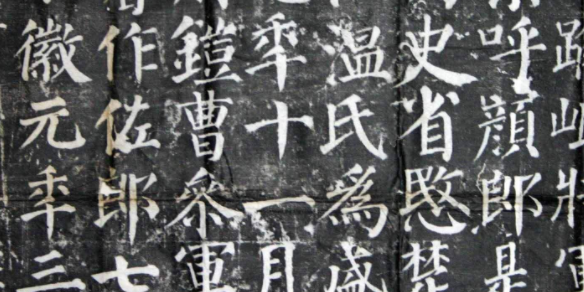 呼顔郎是
史省愍楚
温氏爲盛
年十一月
鎧曹參軍
作佐郎七
徽元年三